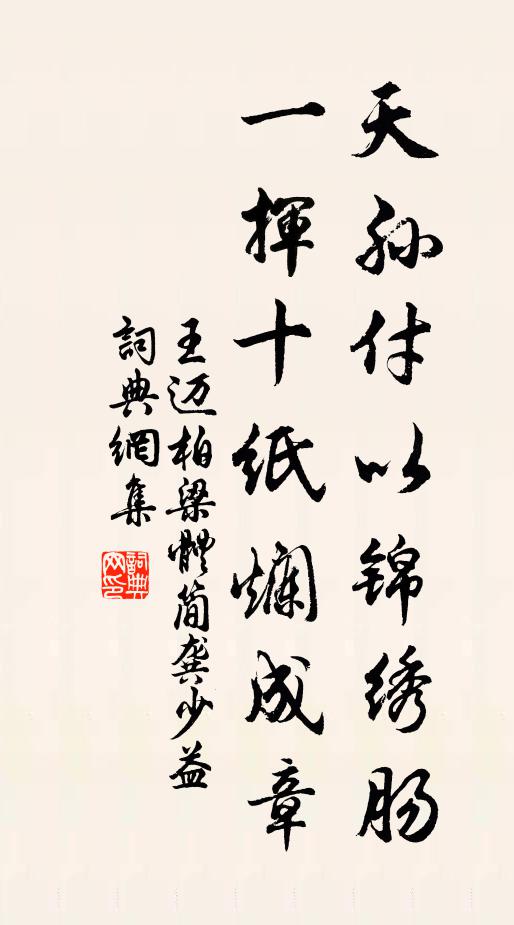 天孙付以锦绣肠
一揮十纸爛成章
王迈柏梁體简龚少益
詞典網集
詞典
网印